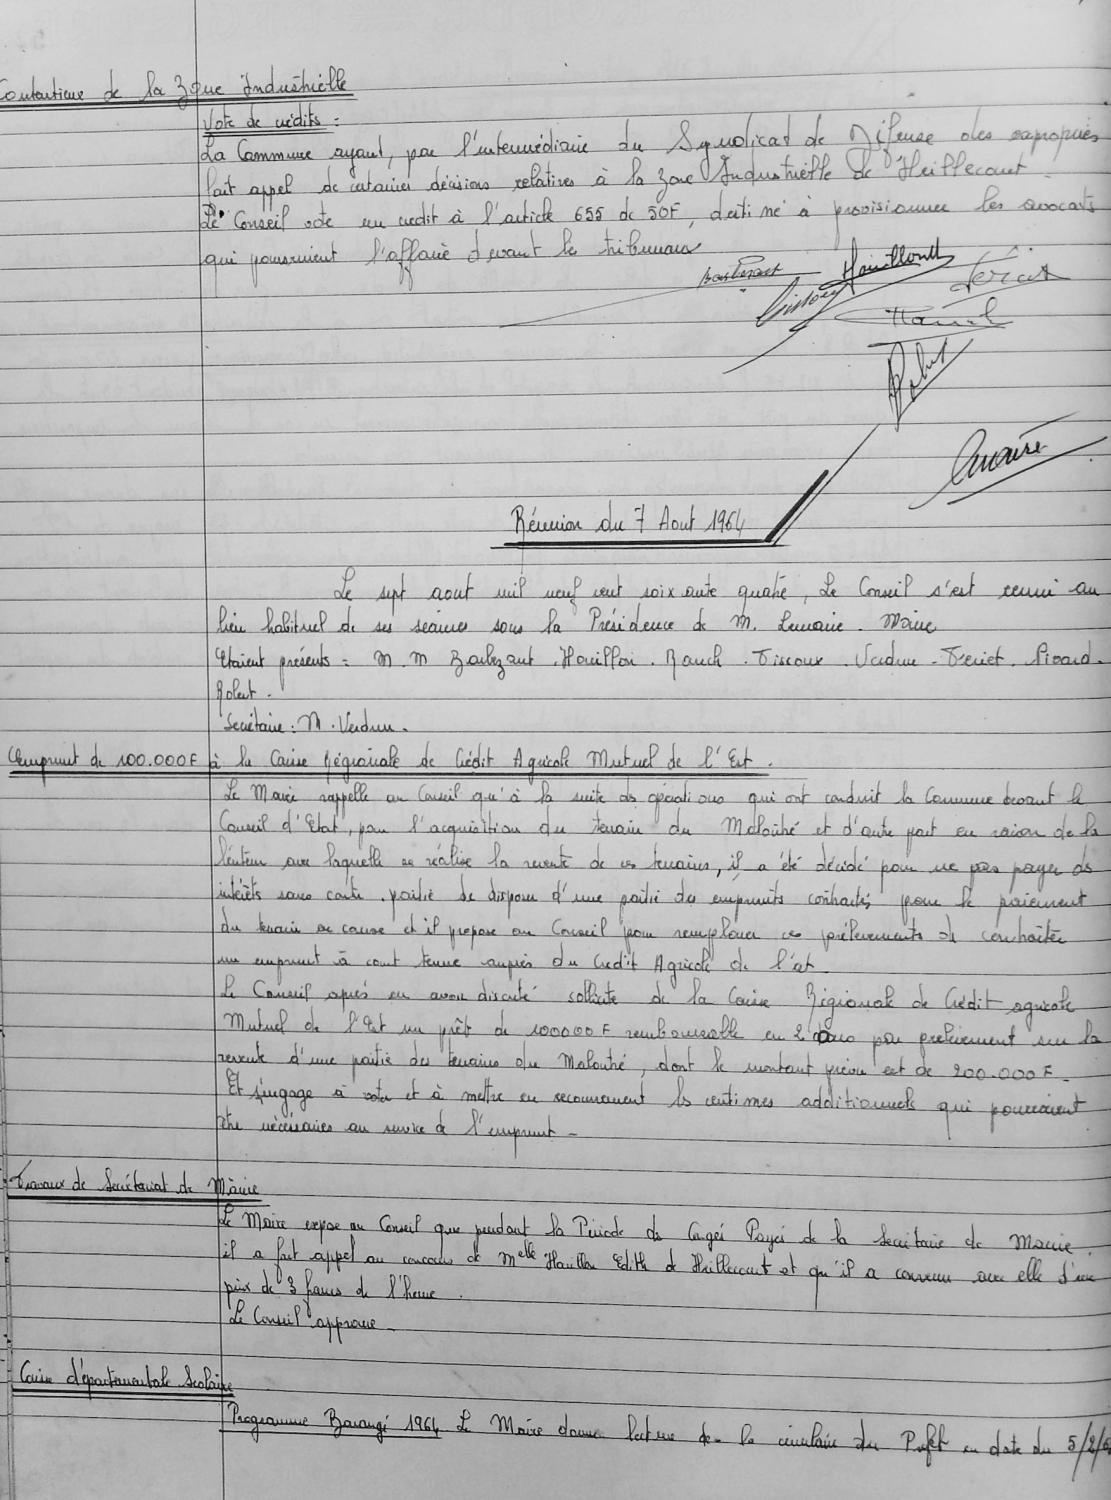 Contentieux de la Zone Industrielle
Vote de crédits :
La Commune ayant, par l'intermédiaire du Syndicat de Défense des expropriés
fait appel de certaines décisions relatives à la zone Industrielle de Heillecourt.
Le Conseil vote un crédit à l'article 655 de 50F, destiné à provisionner les avocats
qui poursuivent l'affaire devant les tribunaux
Houillon
Feriet
Robert
Lemaire
Réunion du 7 Aout 1964
Le sept aout mil neuf cent soixante quatre, Le Conseil s'est reuni au
lieu habituel de ses séances sous la Présidence de M. Lemaire. Maire
Etaient présents : M.M Barbezant. Houillon. Rauch. Tissoux. Verdun. Feriet. Pivard.
Robert.
Secrétaire : M. Verdun.
Emprunt de 100.000F à la Caisse Régionale de Crédit Agricole Mutuel de l'Est.
Le Maire rappelle au Conseil qu'à la suite des opérations qui ont conduit la Commune devant le
Conseil d'Etat, pour l'acquisition du terrain du Malouté et d'autre part en raison de la
lenteur avec laquelle se réalise la revente de ces terrains, il a été décidé pour ne pas payer des
intérêts sans contre partie de disposer d'une partie des emprunts contractés pour le paiement
du terrain en cause et il propose au Conseil pour remplacer ces prélèvements de contracter
un emprunt à court terme auprès du Crédit Agricole de l'est.
Le Conseil après en avoir discuté sollicite de la Caisse Régionale de Crédit agricole
Mutuel de l'Est un prêt de 100000 F remboursable en 2 ans par prélèvement sur la
revente d'une partie des terrains du Malouté, dont le montant prévu est de 200.000 F.
Et s'engage à voter et à mettre en recouvrement les centimes additionnels qui pourraient
être nécessaires au service de l'emprunt -
Travaux de Secrétariat de Mairie
Le Maire expose au Conseil que pendant la Période de Congés Payés de la Secrétaire de Mairie.
il a fait appel au concours de Melle Houillon Edith de Heillecourt et qu'il a convenu avec elle d'un
prix de 3 francs de l'heure.
Le Conseil approuve -
Caisse départementale Scolaire
Programme Barangé 1964 Le Maire donne lecture de la circulaire du Préfet en date du 5/2/